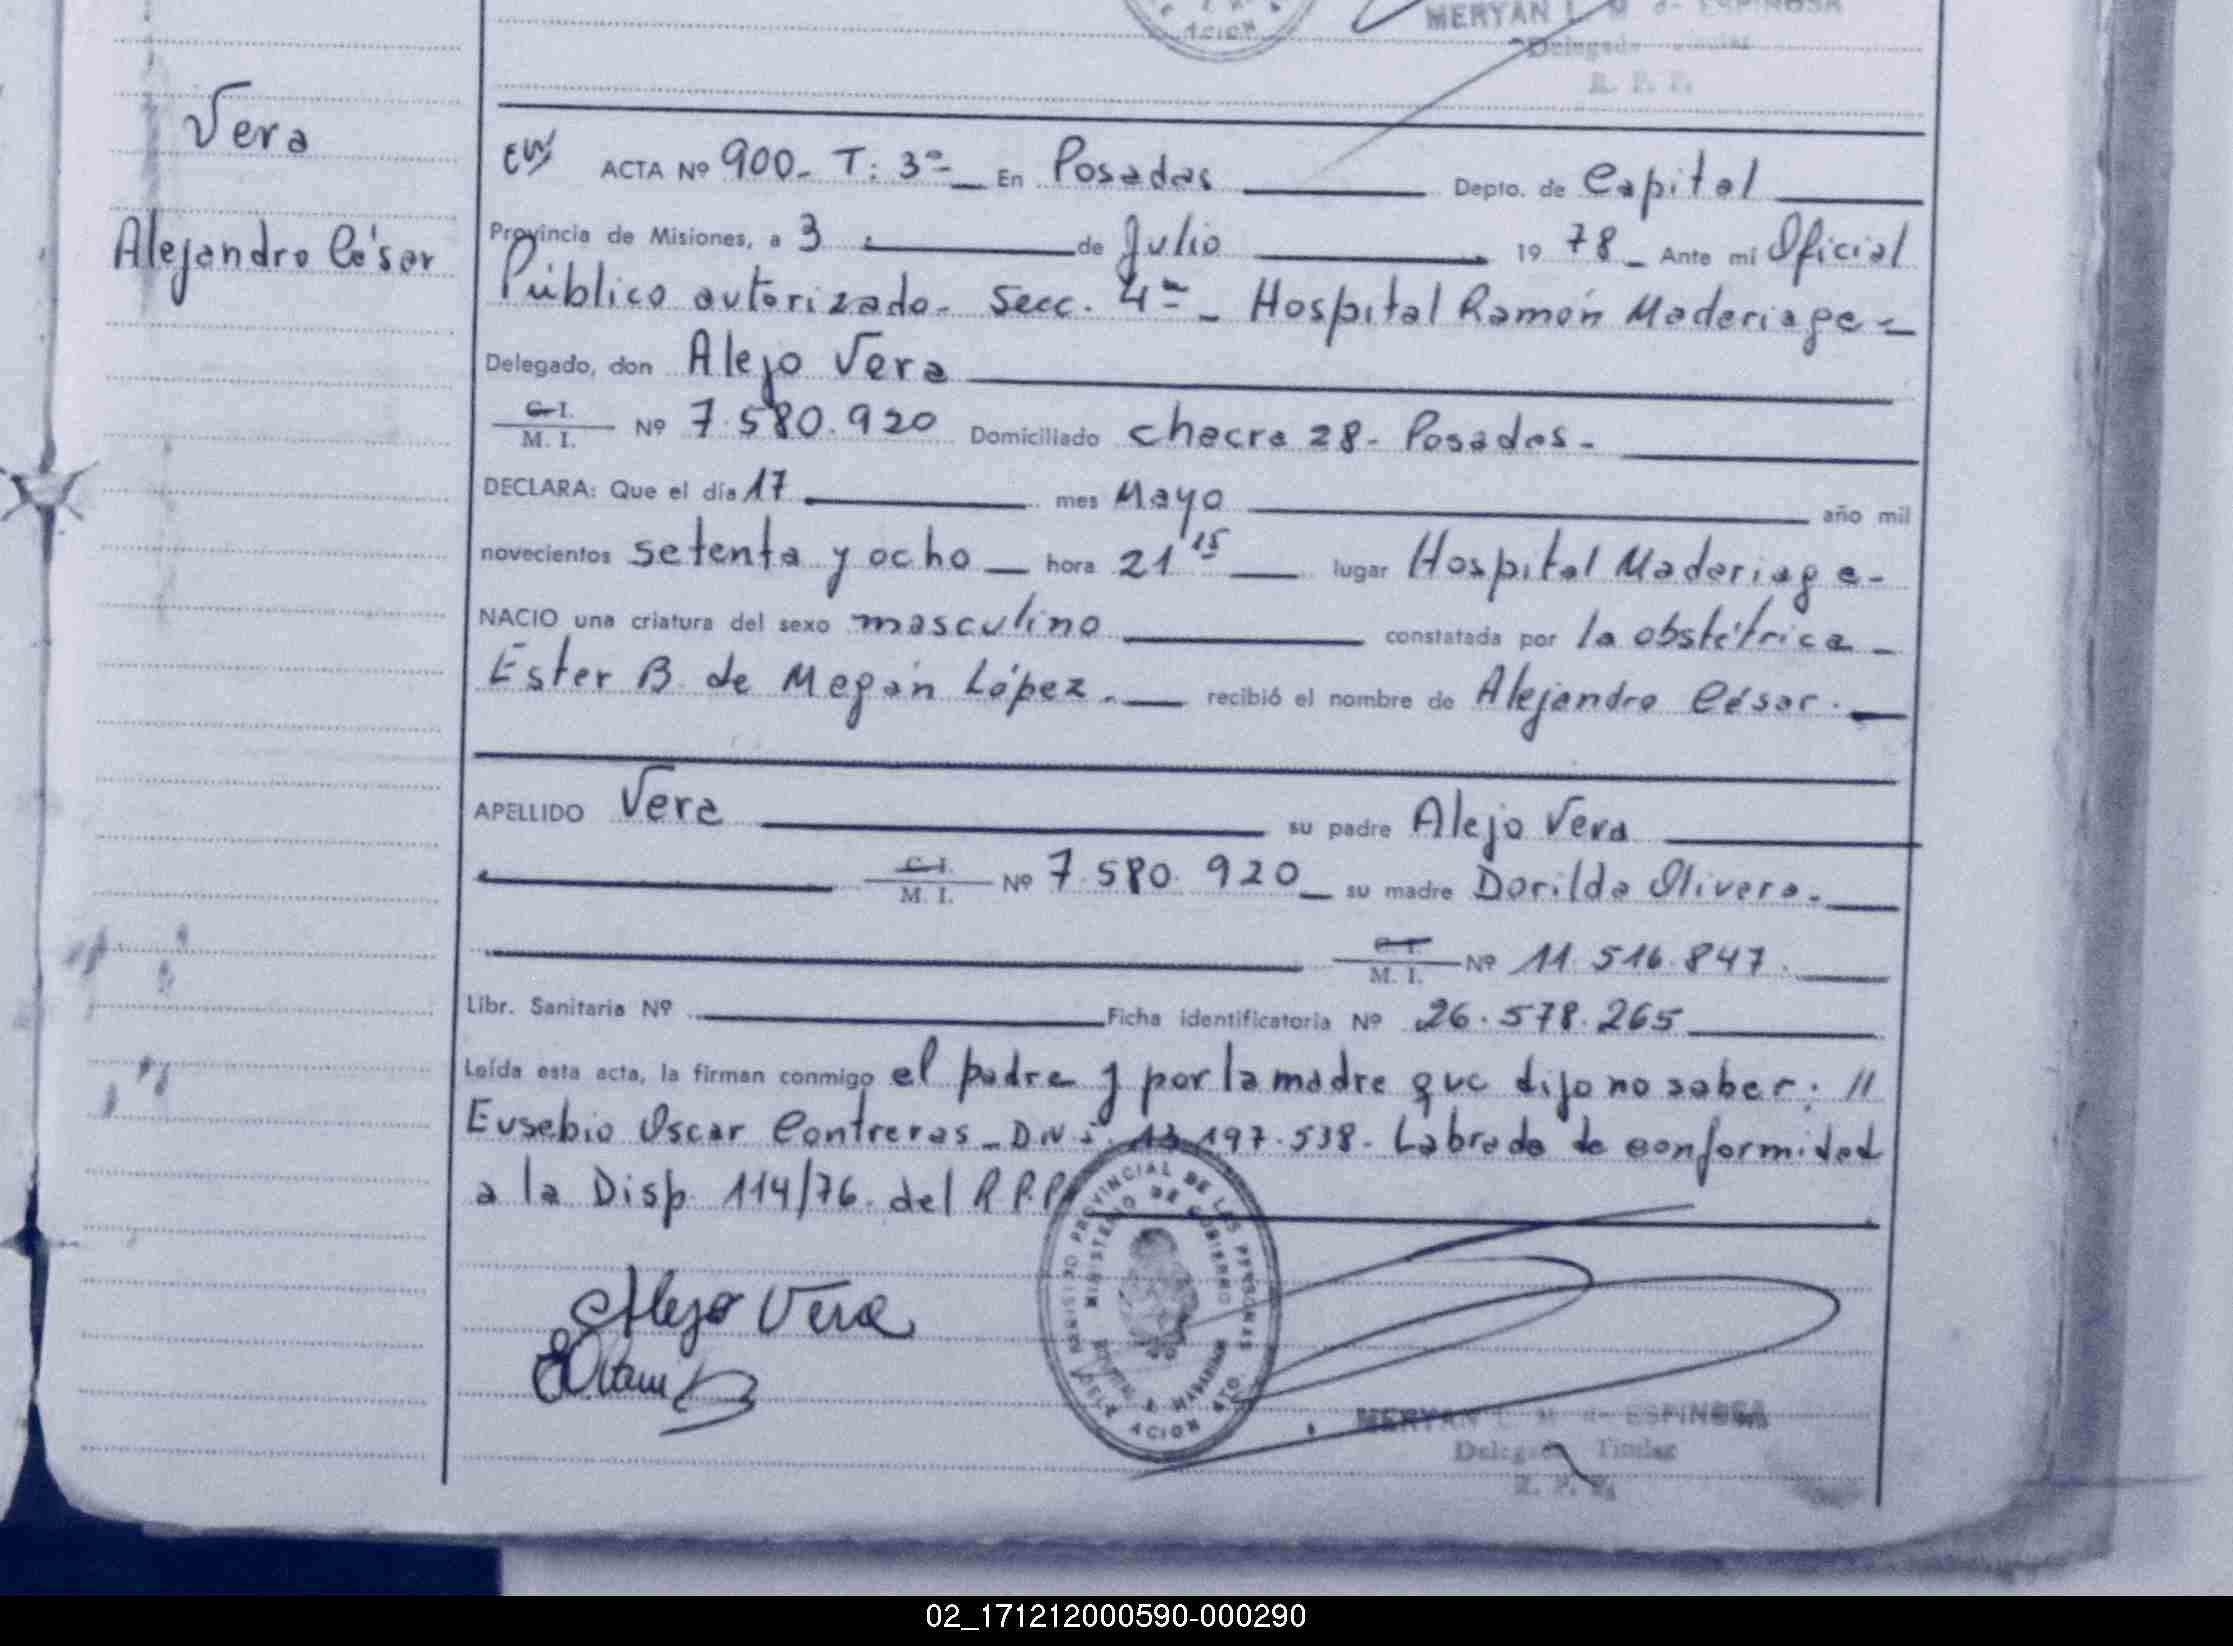 MERYAN L. M de ESPINOSA
Delegado Titular
R. P. P.
Vera
Alejandro César
ACTA Nº 900- T: 3º- En Posadas Depto. de Capital
Provincia de Misiones, a 3 de Julio 1978 - Ante mi Oficial
Público autorizado- Secc. 4ª - Hospital Ramón Maderiaga -
Delegado, don Alejo Vera
C. I.
M. I. Nº 7.580.920 Domiciliado chacra 28- Posadas-
DECLARA: Que el día 17 mes Mayo año mil
novecientos setenta y ocho - hora 21 15 lugar Hospital Maderiaga-
NACIO una criatura del sexo masculino constatada por la obstétrica -
Ester B de Megán López. - recibió el nombre de Alejandro César. -
APELLIDO Vera su padre Alejo Vera
C. I.
M. I. Nº 7.580.920 - su madre Dorilda Olivera.-
C. I.
M. I. Nº 11.516.847.
Libr. Sanitaria Nº Ficha identificatoria Nº 26.578.265
Leída esta acta, la firman conmigo el padre y por la madre que dijo no saber: //
Eusebio Oscar Contreras - D.N.I. 13.197.538- Labrada de conformidad
a la Disp. 114/76. del R.P.P.
REGISTRO PROVINCIAL DE LAS PERSONAS
MINISTERIO DE GOBIERNO
Alejo Vera
MERYAN L. M de ESPINOSA
Delegado Titular
R. P. P.
02_171212000590-000290